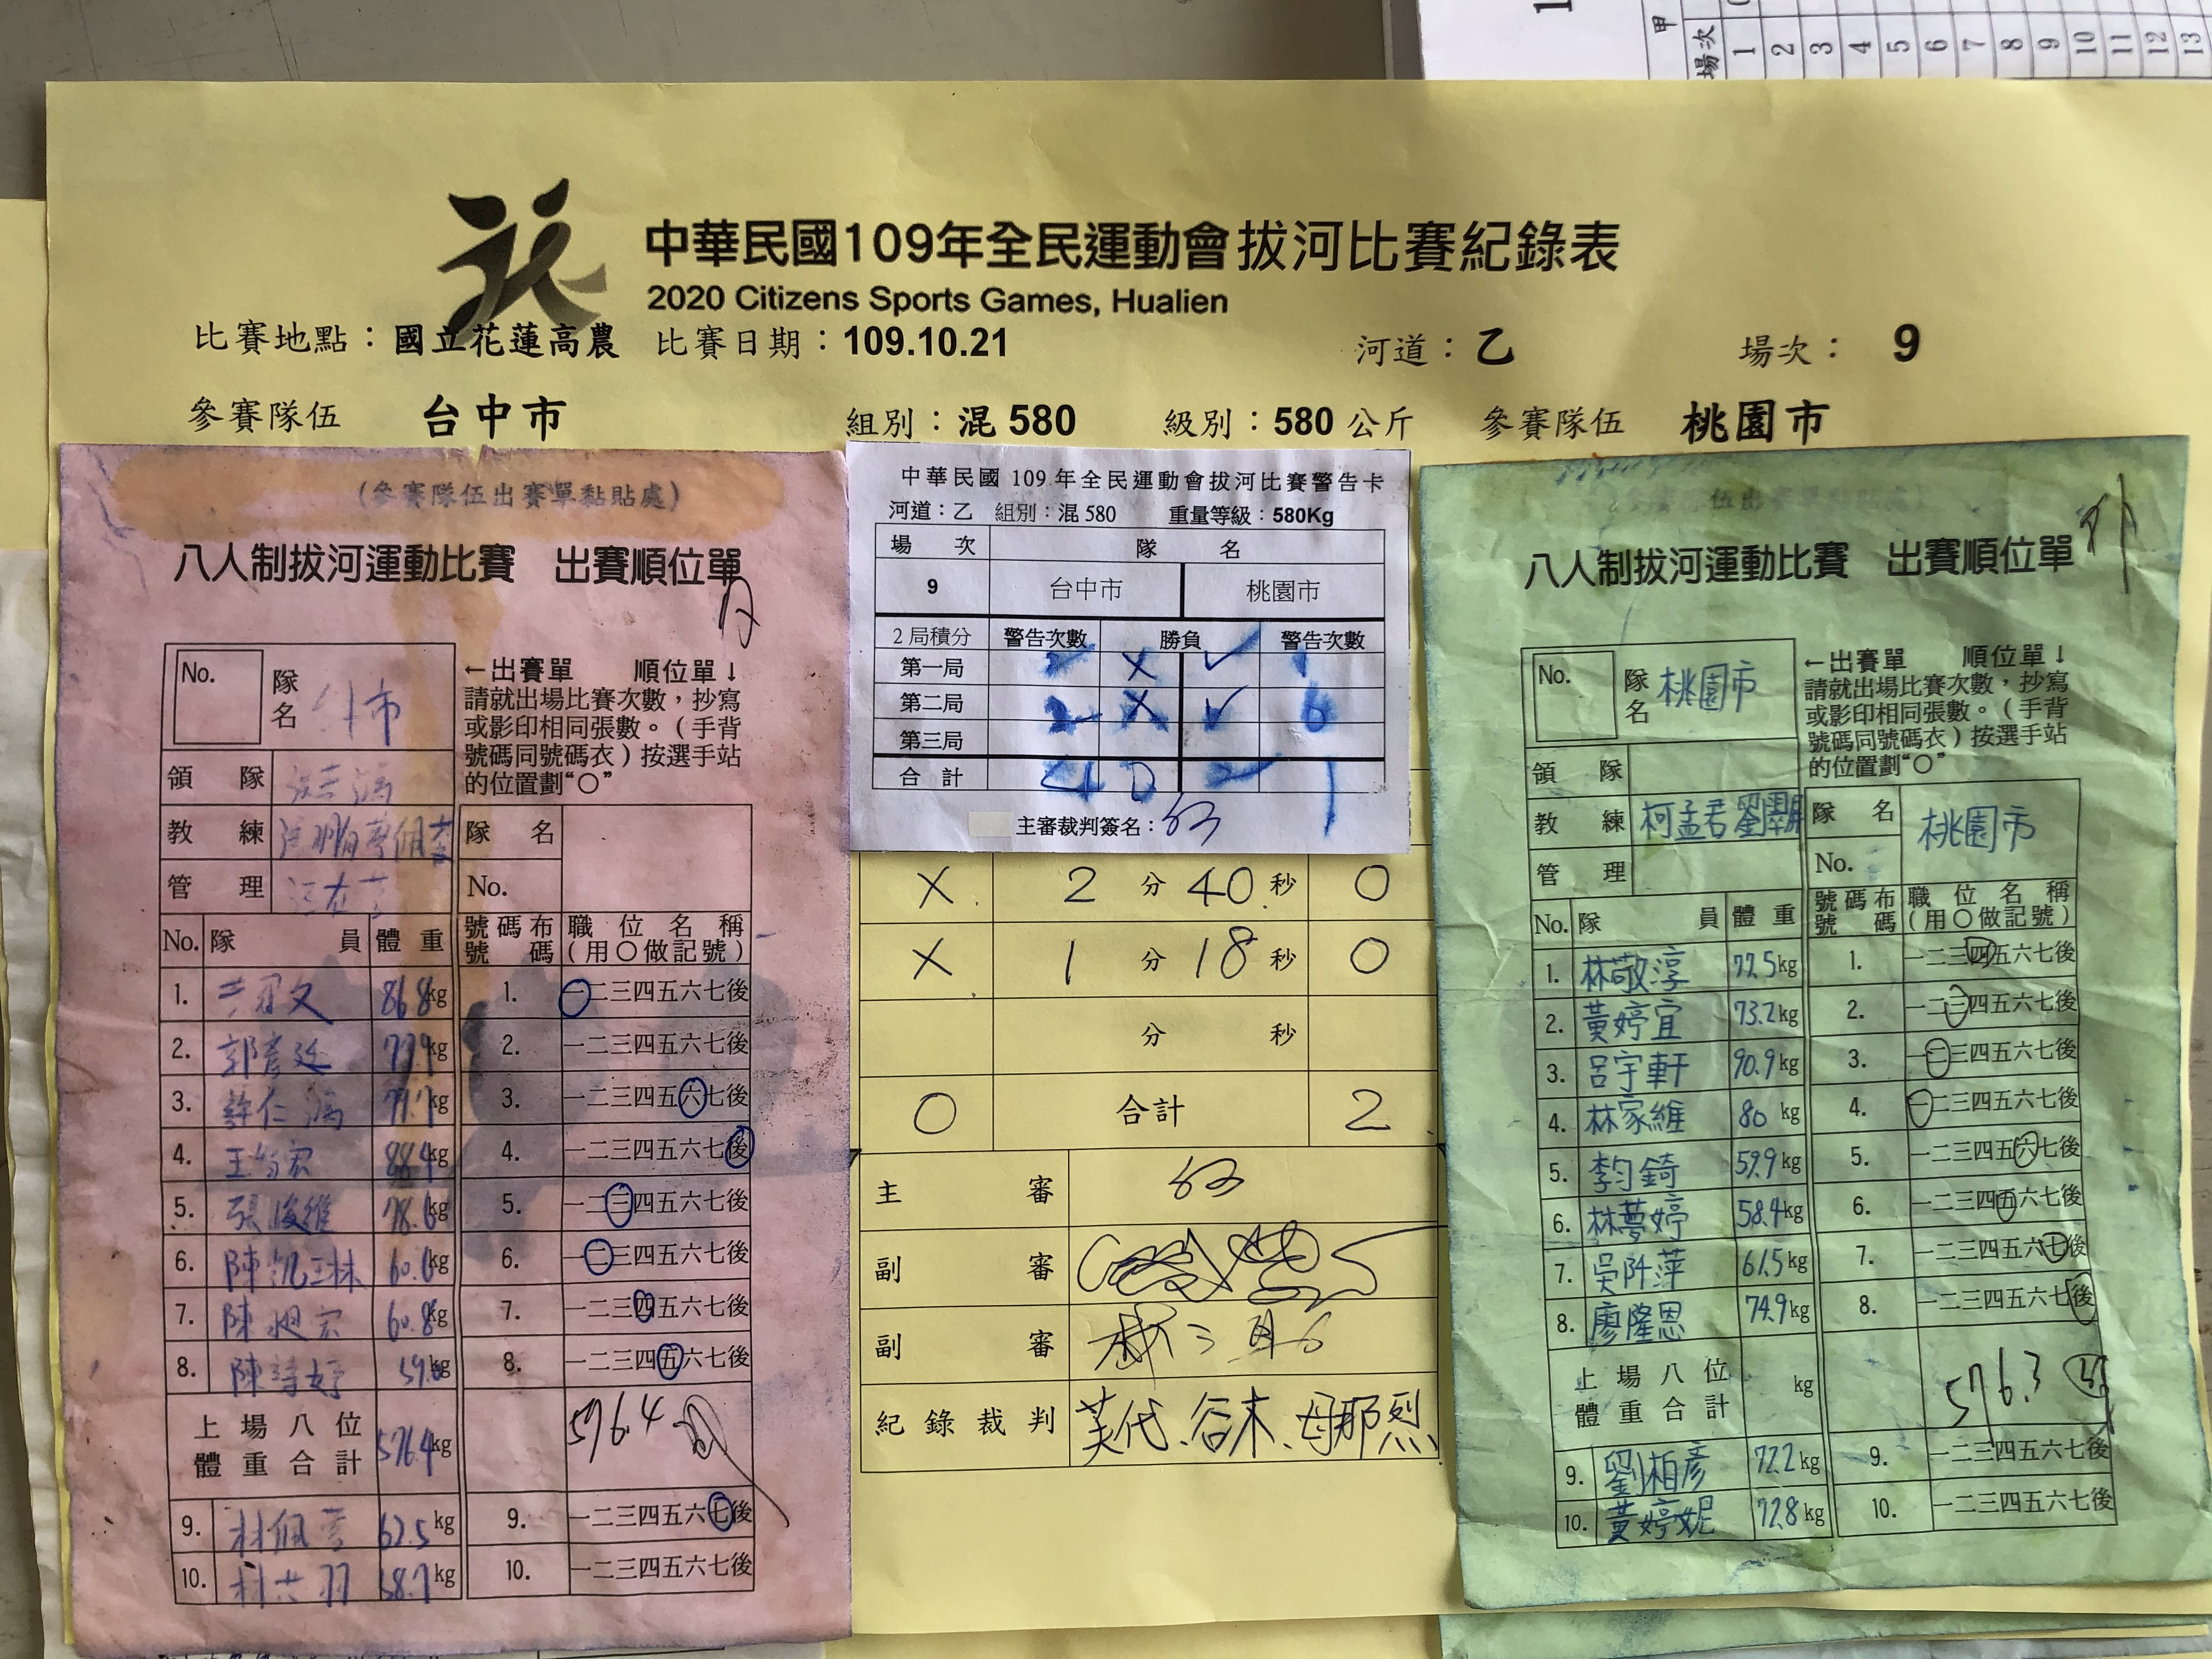 中華民國109年全民運動會拔河比賽紀錄表
2020 Citizens Sports Games, Hualien
比賽地點：國立花蓮高農 比賽日期：109.10.21 河道：乙 場次： 9
參賽隊伍 台中市 組別：混 580 級別：580 公斤 參賽隊伍 桃園市
(參賽隊伍出賽單黏貼處)
八人制拔河運動比賽 出賽順位單
No. 隊名 市
←出賽單 順位單↓
請就出場比賽次數，抄寫
或影印相同張數。（手背
號碼同號碼衣）按選手站
的位置劃“〇”
領 隊
教 練
管 理
隊 名
No.
No. 隊 員 體 重 號碼布號碼 職位名稱(用〇做記號)
1. 86.8kg 1. 一二三四五六七後
2. 郭彥廷 77.9kg 2. 一二三四五六七後
3. 許仁 77.7kg 3. 一二三四五六七後
4. 王 88.4kg 4. 一二三四五六七後
5. 張俊維 78.6kg 5. 一二三四五六七後
6. 陳 60.6kg 6. 一二三四五六七後
7. 陳 60.8kg 7. 一二三四五六七後
8. 陳詩婷 kg 8. 一二三四五六七後
上場八位
體重合計 576.4kg 576.4
9. 林佩 62.5kg 9. 一二三四五六七後
10. 58.7kg 10. 一二三四五六七後
中華民國 109 年全民運動會拔河比賽警告卡
河道：乙 組別：混 580 重量等級：580Kg
場 次 隊 名
9 台中市 桃園市
2 局積分 警告次數 勝負 警告次數
第一局 2 X ✓ 1
第二局 2 X ✓ 0
第三局
合 計 4 0 2 1
主審裁判簽名：
X 2 分 40 秒 0
X 1 分 18 秒 0
分 秒
0 合計 2
主 審
副 審
副 審
紀錄裁判 芙代、谷木、母耶烈
八人制拔河運動比賽 出賽順位單
No. 隊名 桃園市
←出賽單 順位單↓
請就出場比賽次數，抄寫
或影印相同張數。（手背
號碼同號碼衣）按選手站
的位置劃“〇”
領 隊
教 練 柯孟君 劉
管 理
隊 名 桃園市
No.
No. 隊 員 體 重 號碼布號碼 職位名稱(用〇做記號)
1. 林敬淳 77.5kg 1. 一二三四五六七後
2. 黃婷宜 73.2kg 2. 一二三四五六七後
3. 呂宇軒 90.9kg 3. 一二三四五六七後
4. 林家維 80 kg 4. 一二三四五六七後
5. 李均錡 59.9kg 5. 一二三四五六七後
6. 林夢婷 58.4kg 6. 一二三四五六七後
7. 吳阡萍 61.5kg 7. 一二三四五六七後
8. 廖隆恩 74.9kg 8. 一二三四五六七後
上場八位
體重合計 kg 576.3
9. 劉柏彥 72.2kg 9. 一二三四五六七後
10. 黃婷妮 72.8kg 10. 一二三四五六七後
甲
場次 1 2 3 4 5 6 7 8 9 10 11 12 13